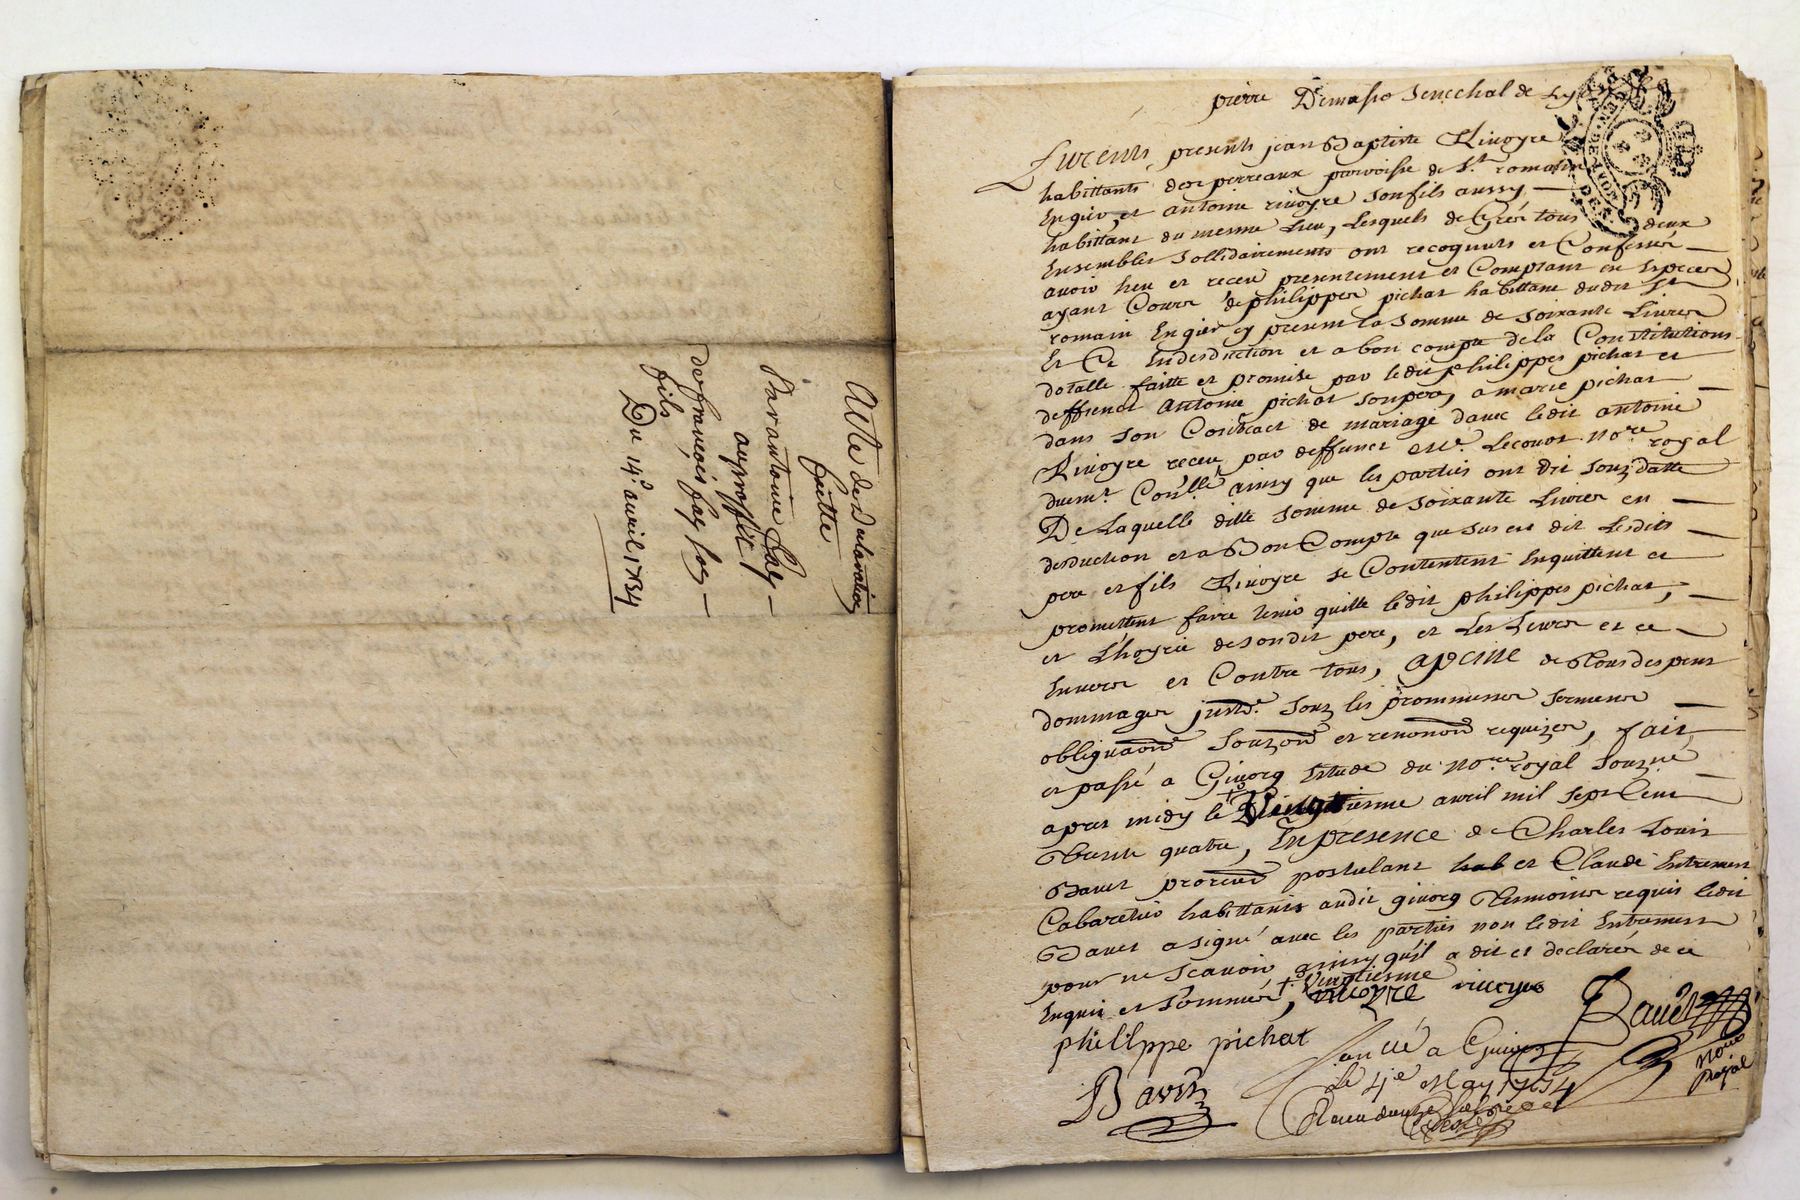 Acte de desdelaration
faitte
Par antoine fay
au proffit
de francois fay son
fils
Du 14e avril 1734
pierre Demasso Senechal de Ly
Furents presents jean Baptiste Rivoyre
habittants des perreaux parroisse de St romain
En gier, et antoine rivoyre son fils aussy
habittant du mesme Lieu, Lesquels de Gréz tous deux
Ensembles Sollidairements ont recognuts et Confesséz
avoir heu et receu presentement et Comptant en Especes
ayant Cours de philippes pichat habittant dudit St
romain En gier cy present la Somme de Soixante Livres
Et Ce En desduction et a bon compte de la Constitutions
dotalle faitte et promise par ledit philippes pichat et
deffunct Antoine pichat Son pere, a marie pichat
dans Son Contract de mariage d'avec ledit antoine
Rivoyre receu par deffunct me Lecourt nore royal
duemt Conllé ainsy que les parties ont dit Souz datte
De Laquelle ditte Somme de Soixante Livres en
desduction et a Bon Compte que Sus est dit Lesdits
pere et fils Rivoyre se Contentent En quittent et
promettent faire tenir quitte ledit philippes pichat,
et L'hoyrie de Son dit pere, et Les Leurs et ce
Envers et Contre tous, apeine de Tous despens
dommages jnrtz. Souz les prommesses Serments
obligaons Souzons et renonons requizes, fait
et passé a Givorg Estude du Nore royal Souzné
apres midy le + Vingtiesme avril mil Sept Cent
Trente quatre, En presence de Charles Louis
Bavet procur postulant hab et Claude Entremont
Cabaretier habittants audit givorg Tesmoins requis ledit
Bavet a signé avec les parties non ledit Entremont
pour ne Scavoir ainsy qu'il a dit et declarés de ce
Enquis et Sommés, + Vingtiesme
rivoyre rivoyre
philippe pichat
Bavet
nore
Royal
Bavet
a Givors
Le 4e May 1734